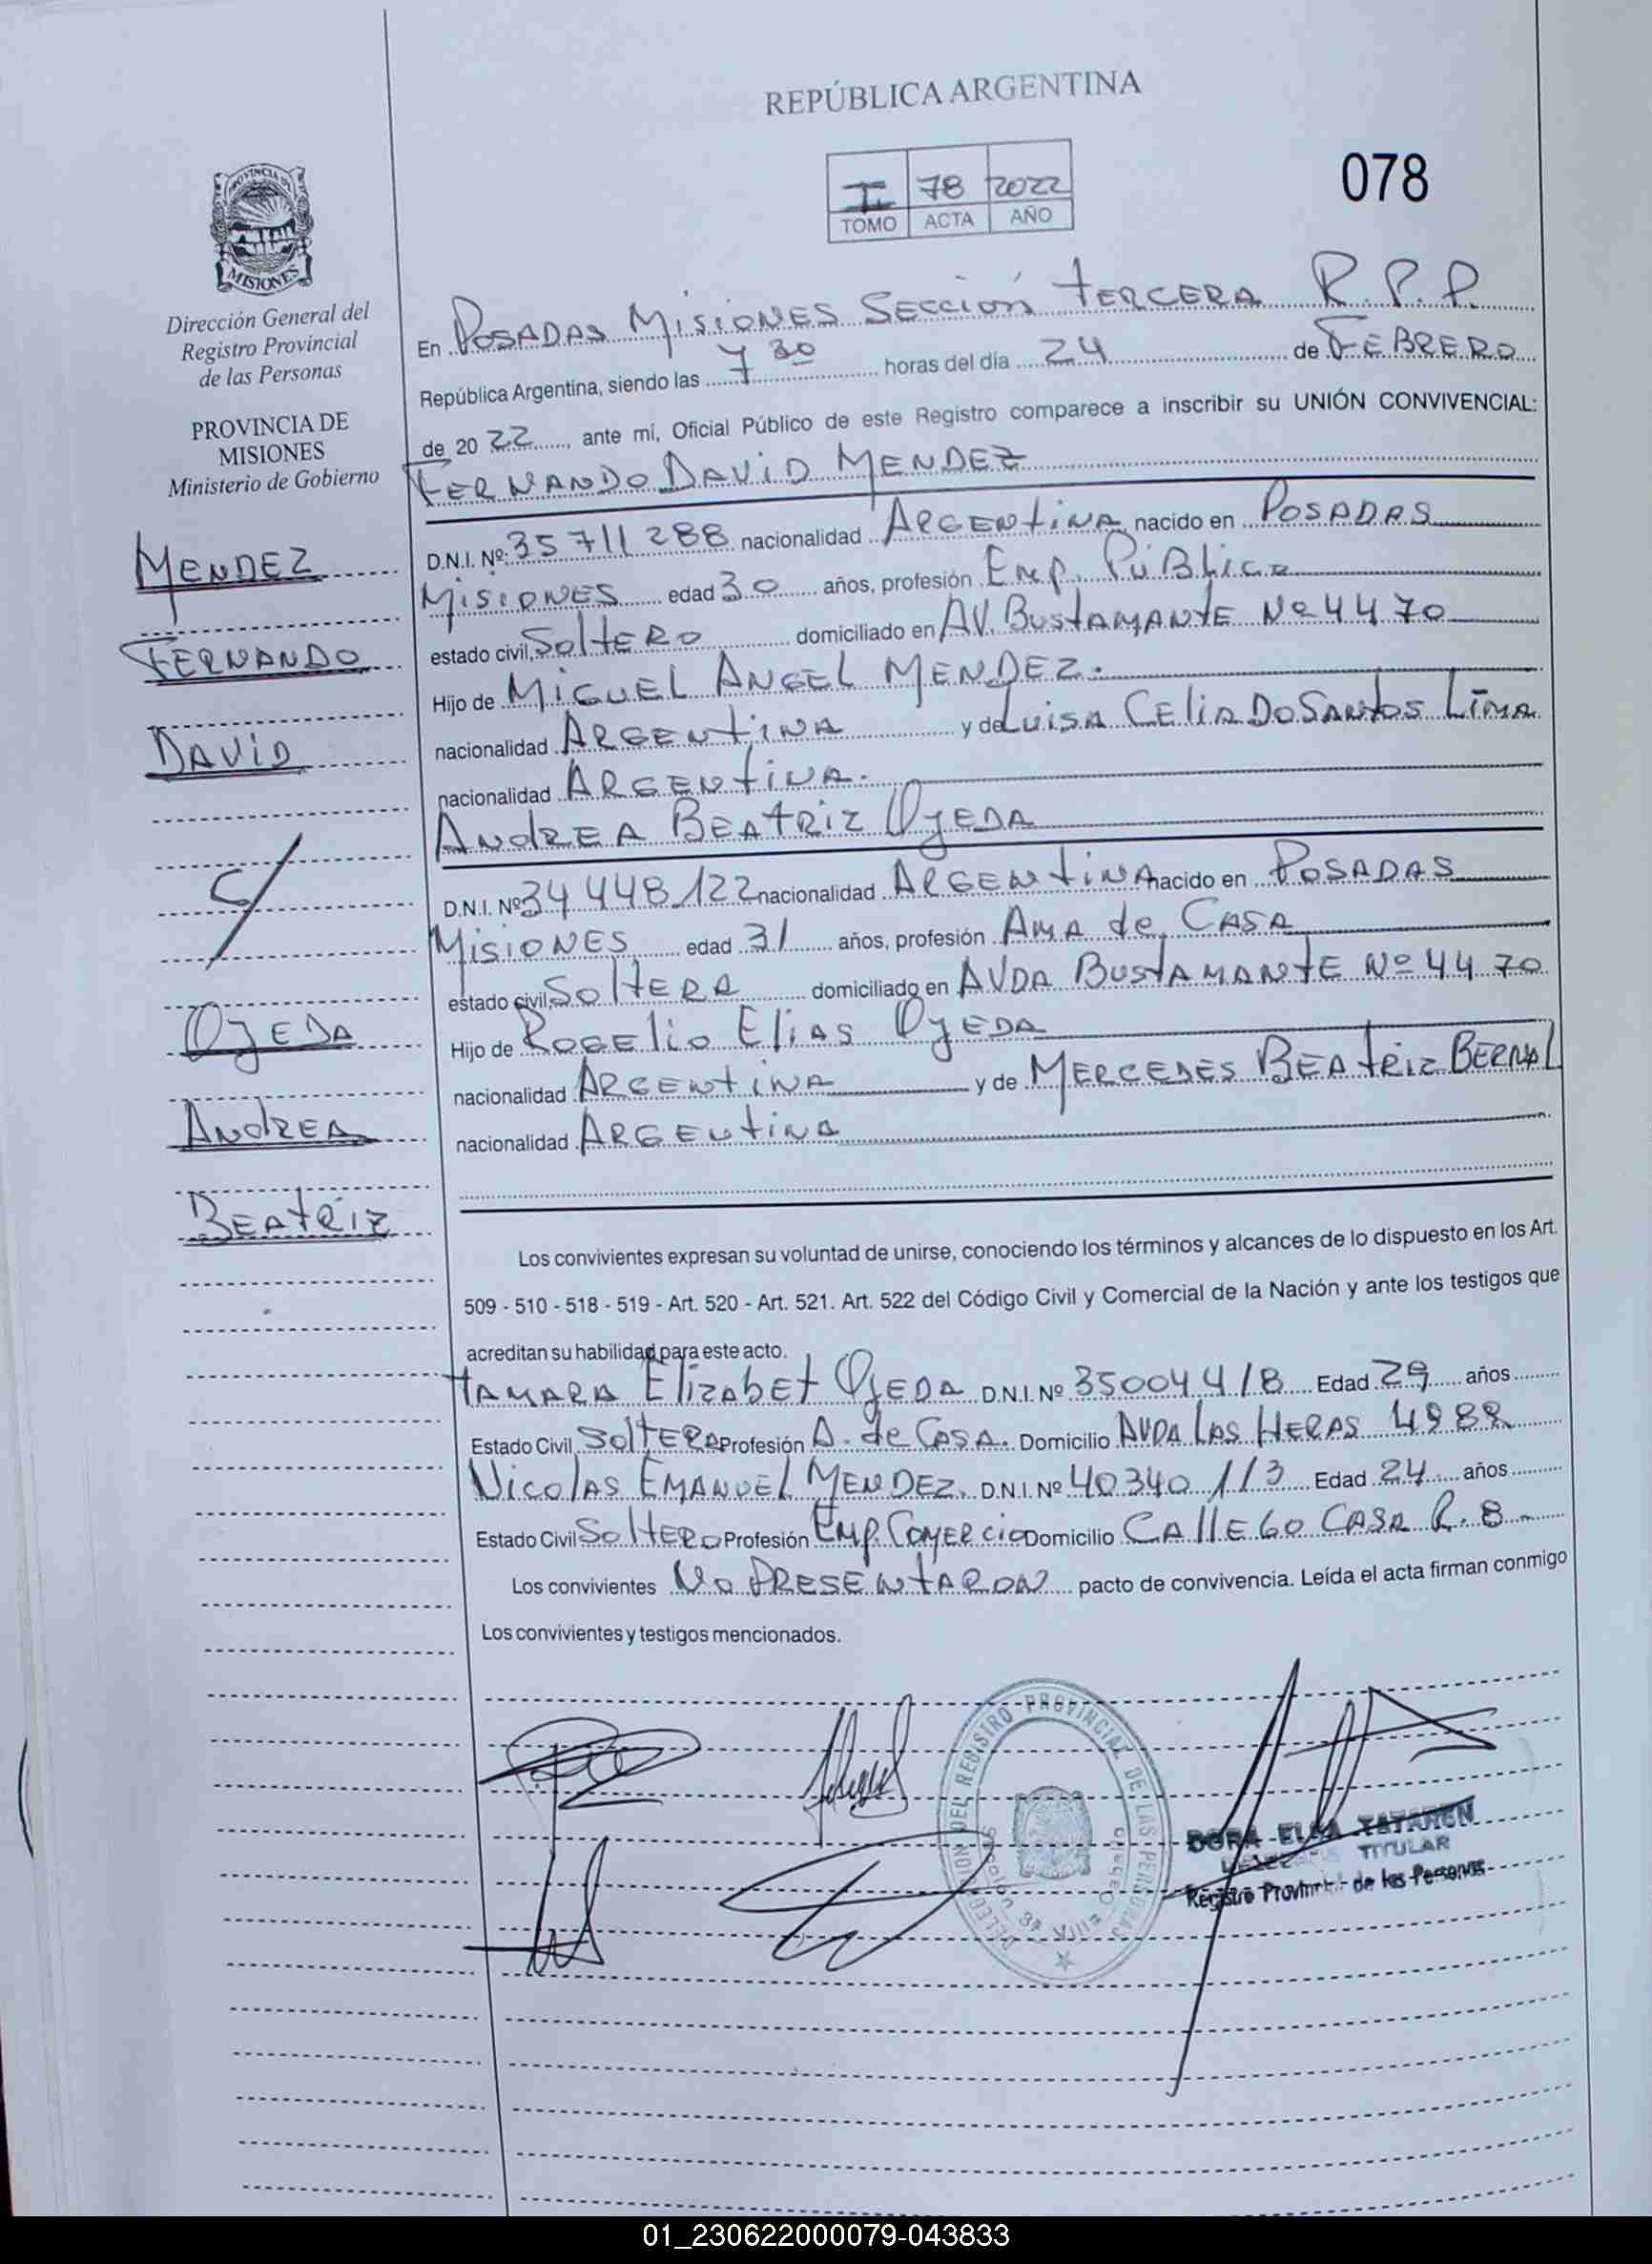 REPÚBLICA ARGENTINA
I 78 2022
TOMO ACTA AÑO
078
PROVINCIA DE
MISIONES
Dirección General del
Registro Provincial
de las Personas
PROVINCIA DE
MISIONES
Ministerio de Gobierno
MENDEZ
FERNANDO
DAVID
C/
OJEDA
ANDREA
BEATRIZ
En POSADAS MISIONES SECCIÓN TERCERA R.P.P.
República Argentina, siendo las 7 30 horas del día 24 de FEBRERO
de 2022, ante mí, Oficial Público de este Registro comparece a inscribir su UNIÓN CONVIVENCIAL:
FERNANDO DAVID MENDEZ
D.N.I. Nº: 35711288 nacionalidad ARGENTINA nacido en POSADAS
MISIONES edad 30 años, profesión EMP. PÚBLICA
estado civil, SOLTERO domiciliado en AV. BUSTAMANTE Nº 4470
Hijo de MIGUEL ANGEL MENDEZ.
nacionalidad ARGENTINA y de LUISA CELIA DO SANTOS LIMA
nacionalidad ARGENTINA.
ANDREA BEATRIZ OJEDA
D.N.I. Nº 34448122 nacionalidad ARGENTINA nacido en POSADAS
MISIONES edad 31 años, profesión AMA de CASA
estado civil, SOLTERA domiciliado en AVDA BUSTAMANTE Nº 4470
Hijo de ROGELIO ELIAS OJEDA
nacionalidad ARGENTINA y de MERCEDES BEATRIZ BERNAL
nacionalidad ARGENTINA
Los convivientes expresan su voluntad de unirse, conociendo los términos y alcances de lo dispuesto en los Art.
509 - 510 - 518 - 519 - Art. 520 - Art. 521. Art. 522 del Código Civil y Comercial de la Nación y ante los testigos que
acreditan su habilidad para este acto.
TAMARA ELIZABET OJEDA D.N.I. Nº 35004418 Edad 29 años
Estado Civil SOLTERA Profesión A. de CASA. Domicilio AVDA LAS HERAS 4988
NICOLAS EMANUEL MENDEZ. D.N.I. Nº 40340113 Edad 24 años
Estado Civil SOLTERO Profesión EMP. COMERCIO Domicilio CALLE 60 CASA R. 8
Los convivientes NO PRESENTARON pacto de convivencia. Leída el acta firman conmigo
Los convivientes y testigos mencionados.
DELEGACION DEL REGISTRO PROVINCIAL DE LAS PERSONAS
Sección 3ª Villa Cabello
DORA ELSA
TITULAR
Registro Provincial de las Personas
01_230622000079-043833